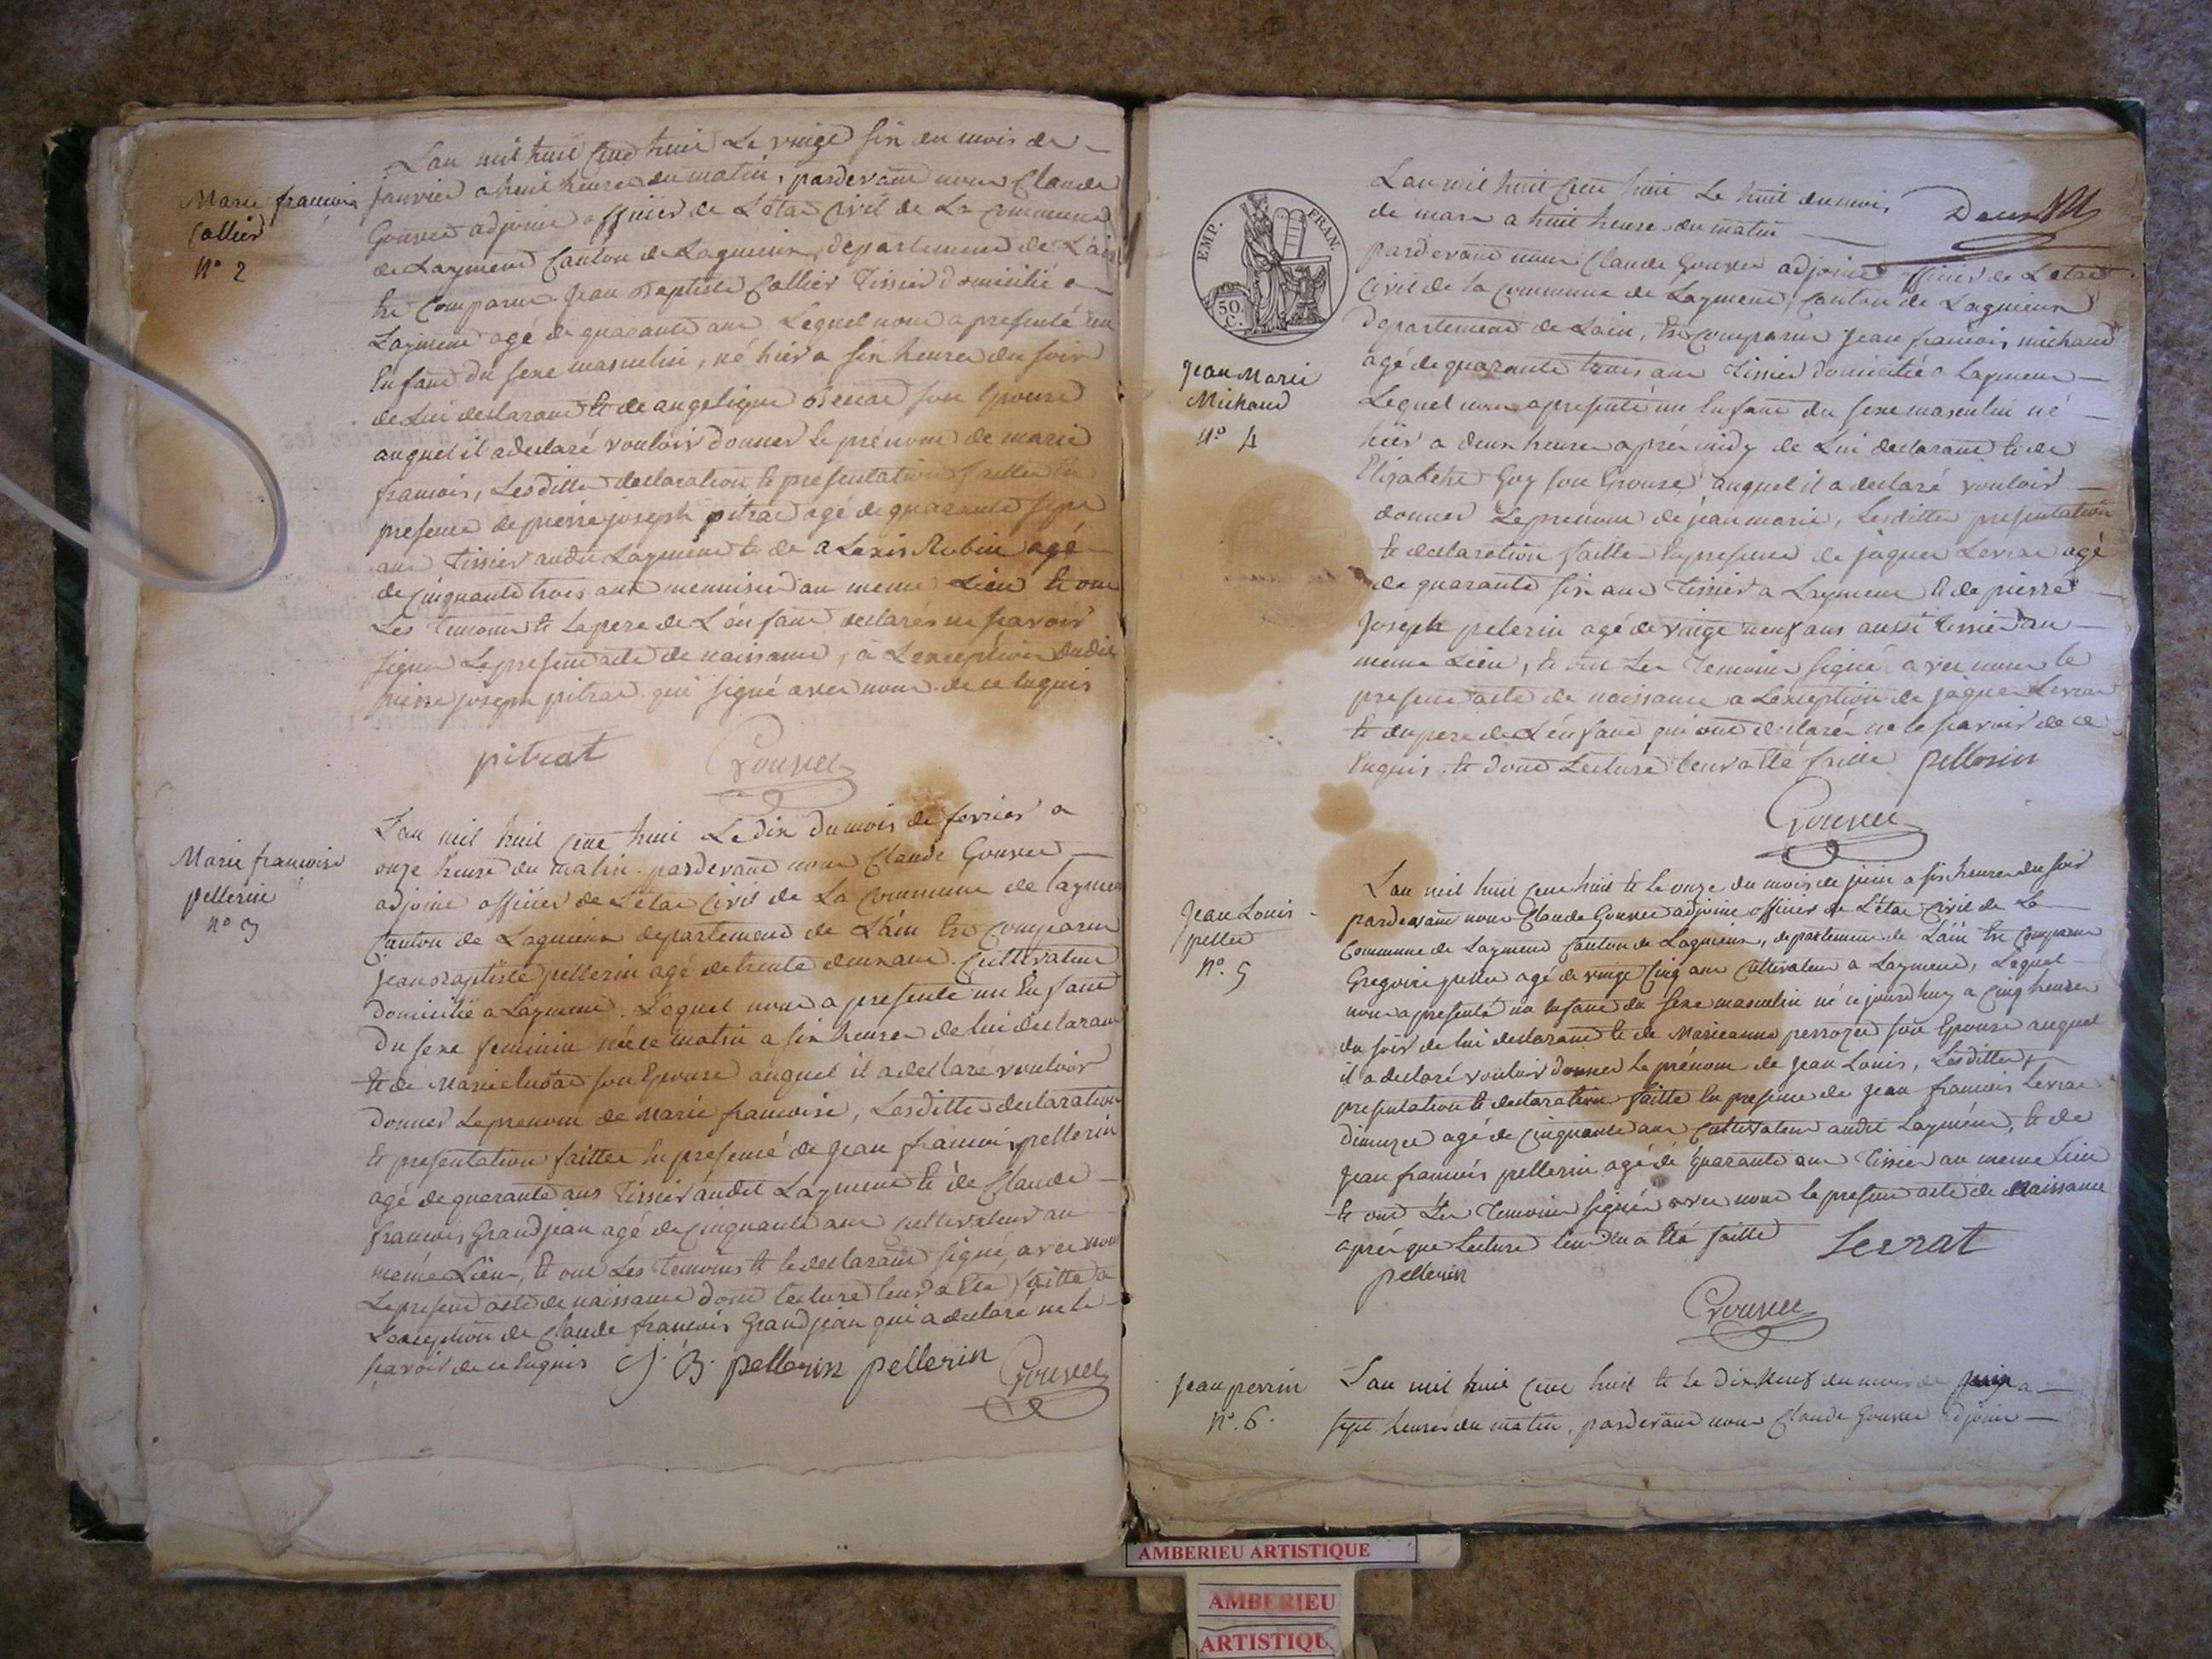 Marie francois
Collier
N° 2
L'an mil huit cent huit Le vingt six du mois de
Janvier a huit heures du matin, pardevant nous Claude
Gouvet adjoint officier de L'état Civil de La Commune
de Laymend Canton de Lagnieux, departement de L'ain
Est Comparu Jean Baptiste Collier Tissier domicilié a
Laymend agé de quarante ans Lequel nous a presenté un
Enfant du sexe masculin, né hier a six heures du soir
de Lui declarant et de angelique son Epouse
auquel il a declaré vouloir donner le prénom de marie
francois, Lesdittes declaration et presentation faittes En
presence de pierre joseph pitrat agé de quarante sept
ans Tissier audit Laymend et de alexis Robin agé
de cinquante trois ans menuisier au meme Lieu et ont
Les temoins et le pere de L'enfant declarés ne savoir
signer Le present acte de naissance, a L'exception dudit
pierre joseph pitrat qui signé avec nous de ce Enquis
pitrat Gouvet
Marie francoise
pellerin
n° 3
L'an mil huit cent huit Le dix du mois de fevrier a
onze heures du matin pardevant nous Claude Gouvet
adjoint officier de L'etat Civil de La Commune de Laymend
Canton de Lagnieux departement de L'ain Est Comparu
Jean Baptiste pellerin agé de trente deux ans Cultivateur
domicilié a Laymend. Lequel nous a presenté un Enfant
du sexe feminin née ce matin a six heures de lui declarant
et de Marie son Epouse auquel il a declaré vouloir
donner Le prenom de Marie francoise, Lesdittes declaration
et presentation faittes En presence de Jean francois pellerin
agé de quarante ans Tissier audit Laymend et de Claude
francois Grandjean agé de cinquante ans Cultivateur au
même Lieu, et ont Les temoins et le declarant signé, avec nous
Le present acte de naissance dont lecture leur a Eté faitte a
L'exception de Claude francois Grandjean qui a declaré ne le
savoir de ce Enquis J. B. pellerin pellerin Gouvet
EMP. FRAN.
50
C.
Jean Marie
Michaud
N° 4
L'an mil huit cent huit Le huit du mois
de mars a huit heures du matin
pardevant nous Claude Gouvet adjoint officier de L'etat
Civil de la Commune de Laymend, Canton de Lagnieux
departement de Lain, Est Comparu Jean francois michaud
agé de quarante trois ans Tissier domicilié a Laymend
Lequel nous a presenté un Enfant du sexe masculin né
hier a deux heures aprés midy de Lui declarant et de
Elizabethe Goy son Epouse auquel il a declaré vouloir
donner Le prenom de jean marie, Lesdittes presentation
et declaration faittes En presence de jaques Levrat agé
de quarante six ans Tissier a Laymend et de pierre
Joseph pelerin agé de vingt neuf ans aussi Tissier au
meme Lieu, et ont Les Temoins signé avec nous le
present acte de naissance a L'exception de jaques Levrat
et du pere de L'enfant qui ont declarés ne le savoir de ce
Enquis et dont Lecture leur a Eté faitte pellerin
Gouvet
Jean Louis
pellet
N° 5
L'an mil huit cent huit et le onze du mois de juin a six heures du soir
pardevant nous Claude Gouvet adjoint officier de L'état Civil de La
Commune de Laymend Canton de Lagnieux, departement de L'ain Est Comparu
Gregoire pellet agé de vingt cinq ans Cultivateur a Laymend, Lequel
nous a presenté un Enfant du sexe masculin né ce jourd'huy a cinq heures
du soir de lui declarant et de Marieanne son Epouse auquel
il a declaré vouloir donner le prénom de Jean Louis, Lesdittes
presentation et declaration faitte En presence de Jean francois Levrat
agé de cinquante ans Cultivateur audit Laymend, et de
Jean francois pellerin agé de quarante ans Tissier au meme Lieu
et ont Les Temoins signés avec nous le present acte de Naissance
aprés que Lecture leur En a Eté faitte Levrat
pellerin
Gouvet
Jean perrin
N° 6.
L'an mil huit cent huit et le dix neuf du mois de juin a
sept heures du matin, pardevant nous Claude Gouvet adjoint
AMBERIEU ARTISTIQUE
AMBERIEU
ARTISTIQU